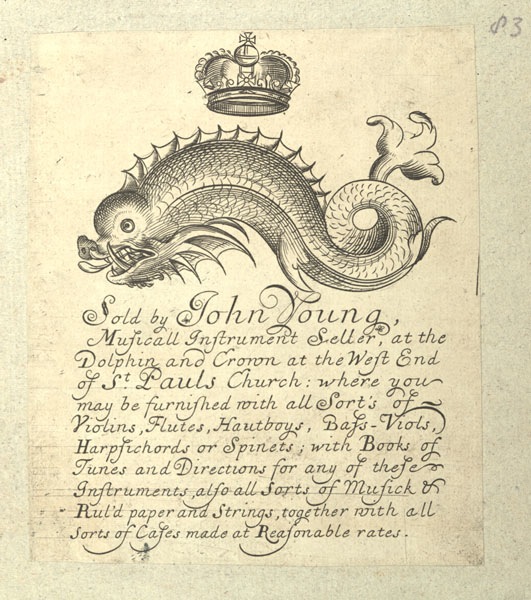 83
Sold by John Young,
Musicall Instrument Seller, at the
Dolphin and Crown at the West End
of St. Pauls Church: where you
may be furnished with all Sort's of
Violins, Flutes, Hautboys, Bass-Viols,
Harpsichords or Spinets; with Books of
Tunes and Directions for any of these
Instruments, also all Sorts of Musick &
Rul'd paper and Strings, together with all
sorts of Cases made at Reasonable rates.